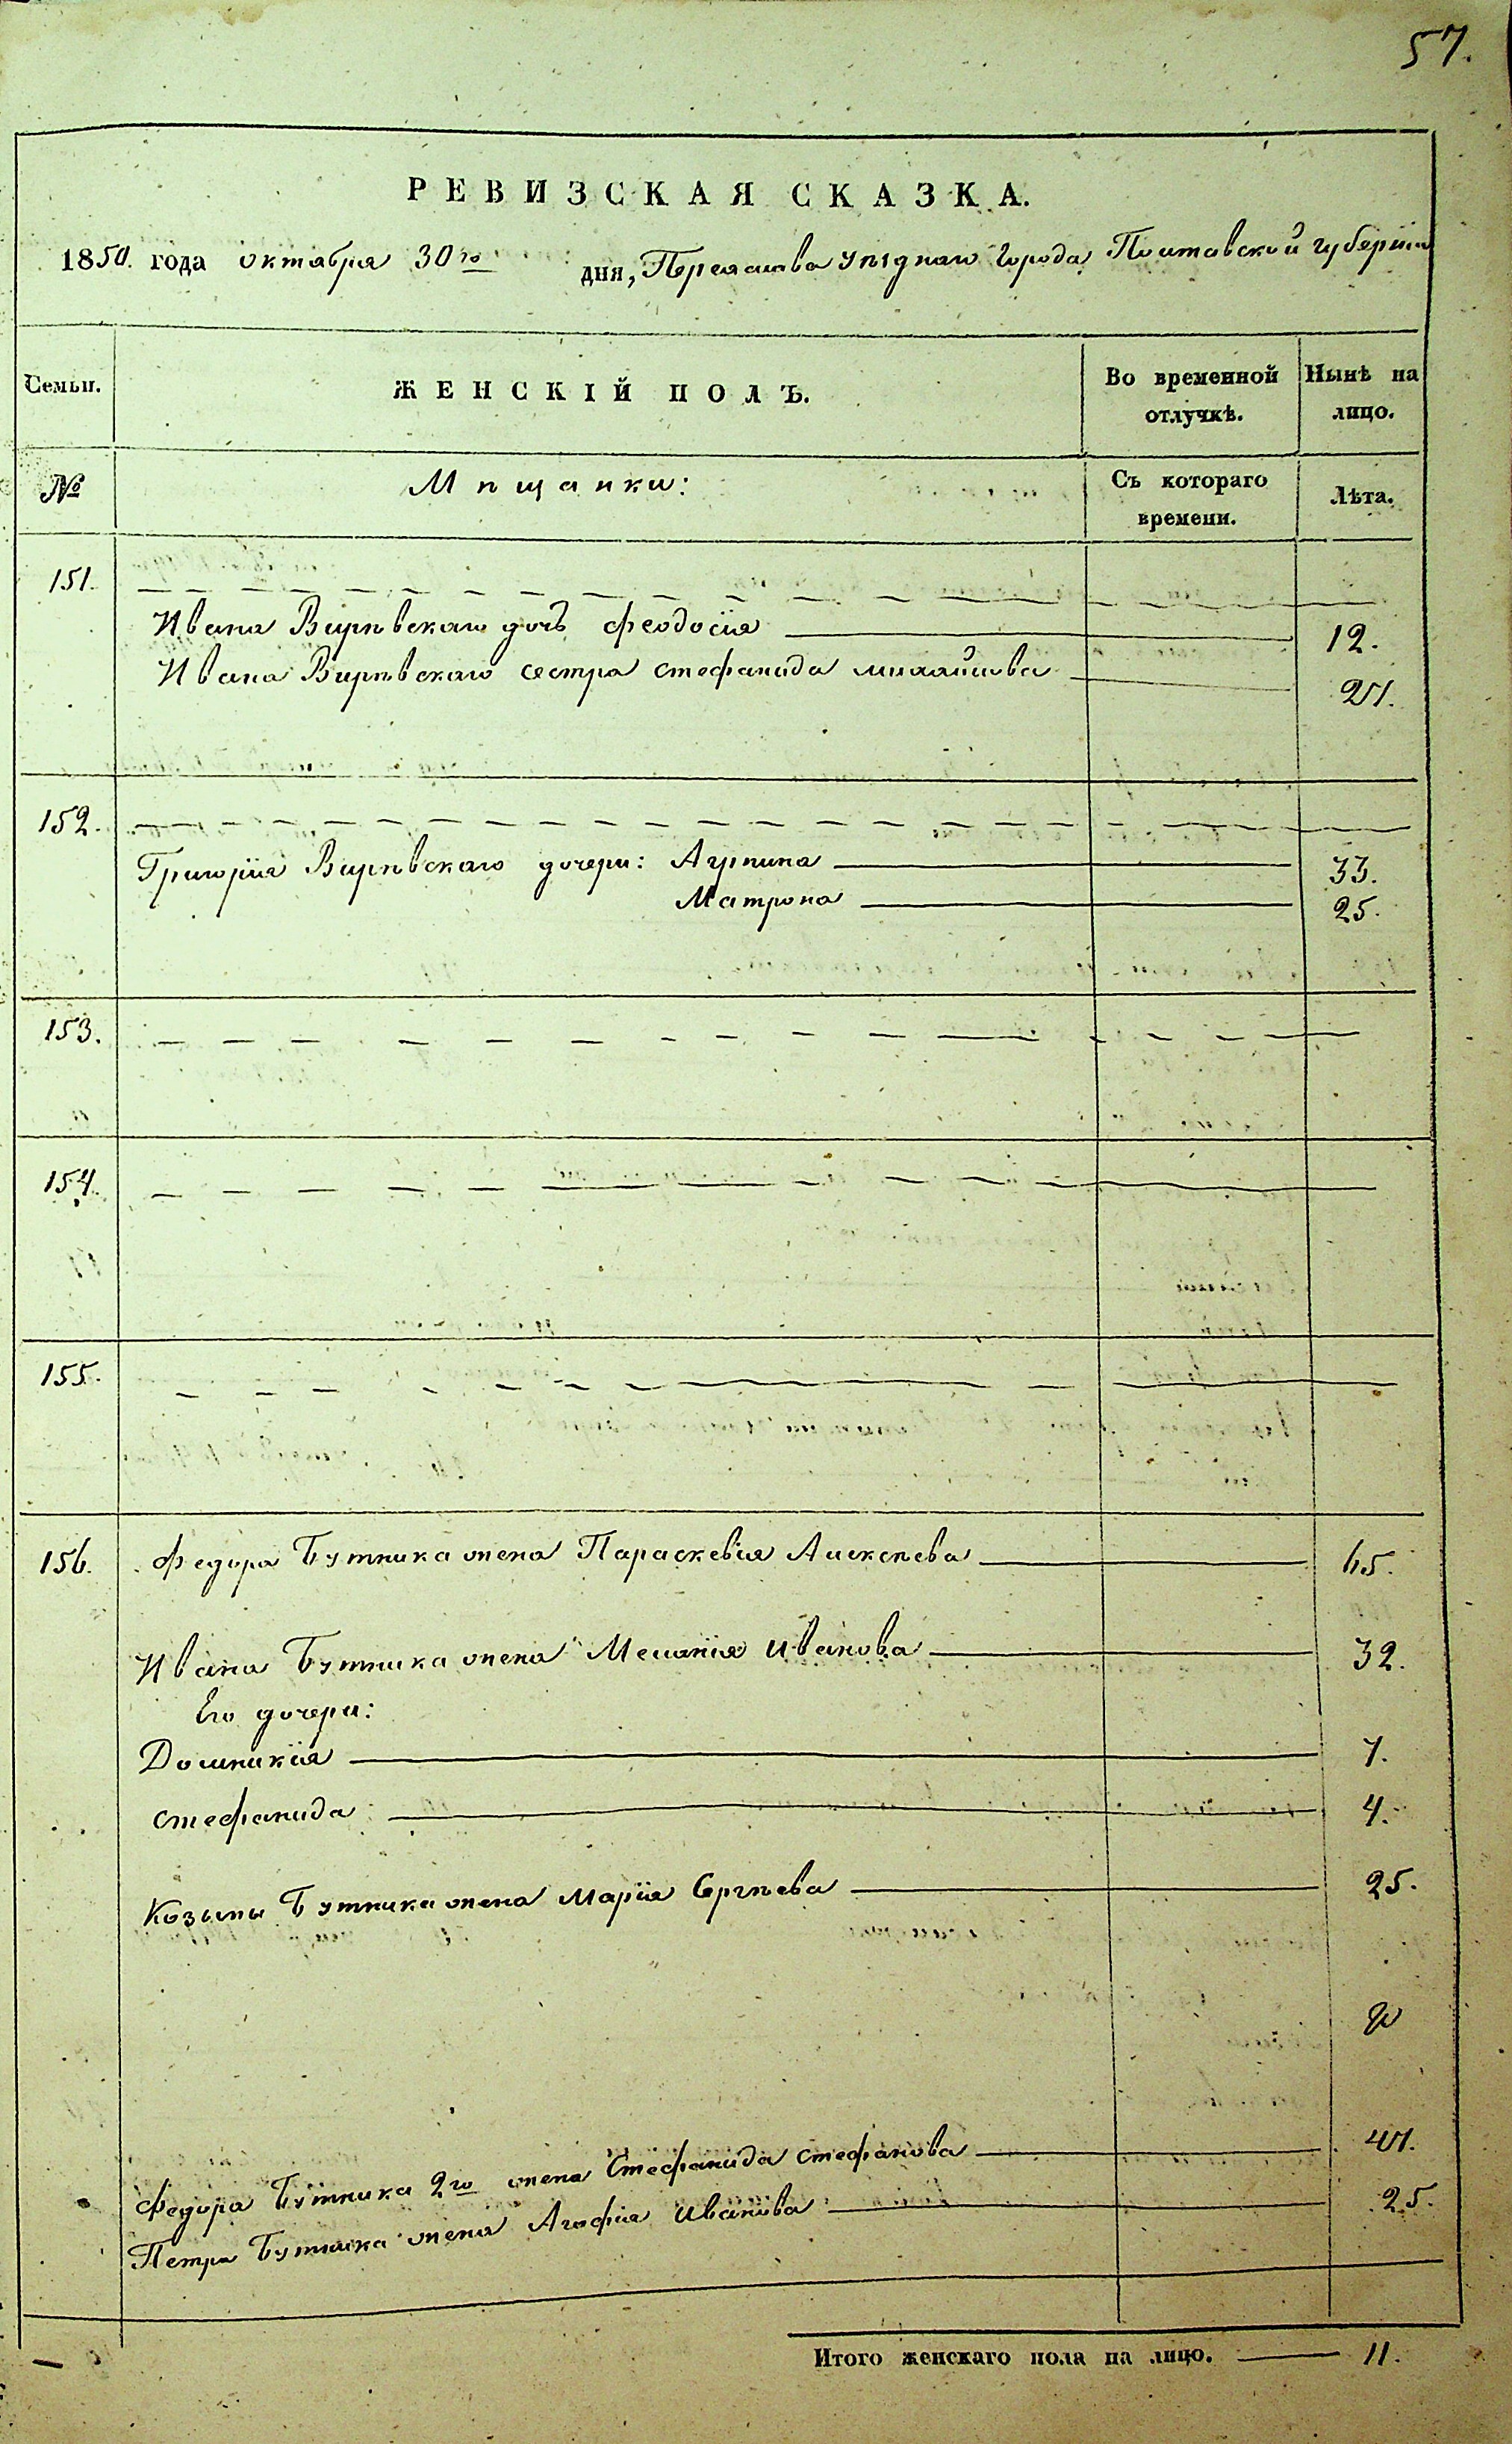 57.
РЕВИЗСКАЯ СКАЗКА.
1850. года октября 30го дня, Переяслава уѣзднаго города Полтавской губерніи
Семьи. ЖЕНСКІЙ ПОЛЪ. Во временной отлучкѣ. Нынѣ на лицо.
№ Мѣщанки: Съ котораго времени. Лѣта.
151.
Ивана Вирѣвскаго дочь Феодосія 12.
Ивана Вирѣвскаго сестра Стефанида Михайлова
152.
Григорія Вирѣвскаго дочери: Агрпина 33.
Матрона 25.
153.
154.
155.
156. Федора Бутника жена Параскевія Алексѣева 65.
Ивана Бутника жена Меланія Иванова 32.
Его дочери:
Домникія 7.
Стефанида 4.
Козьмы Бутника жена Марія Сергѣева 25.
Федора Бутника 2го жена Стефанида Стефанова
Петра Бутника жена Агафія Иванова 25.
Итого женскаго пола на лицо. 11.